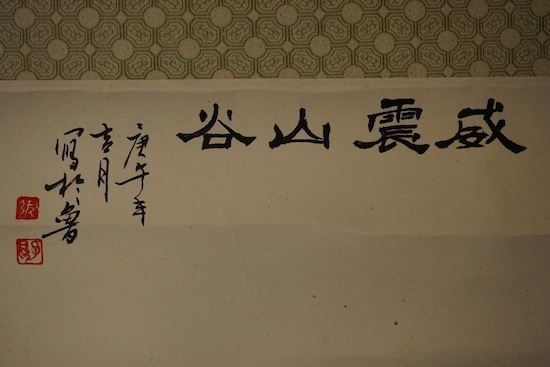 威震山谷
庚午年
吉月
写於鲁